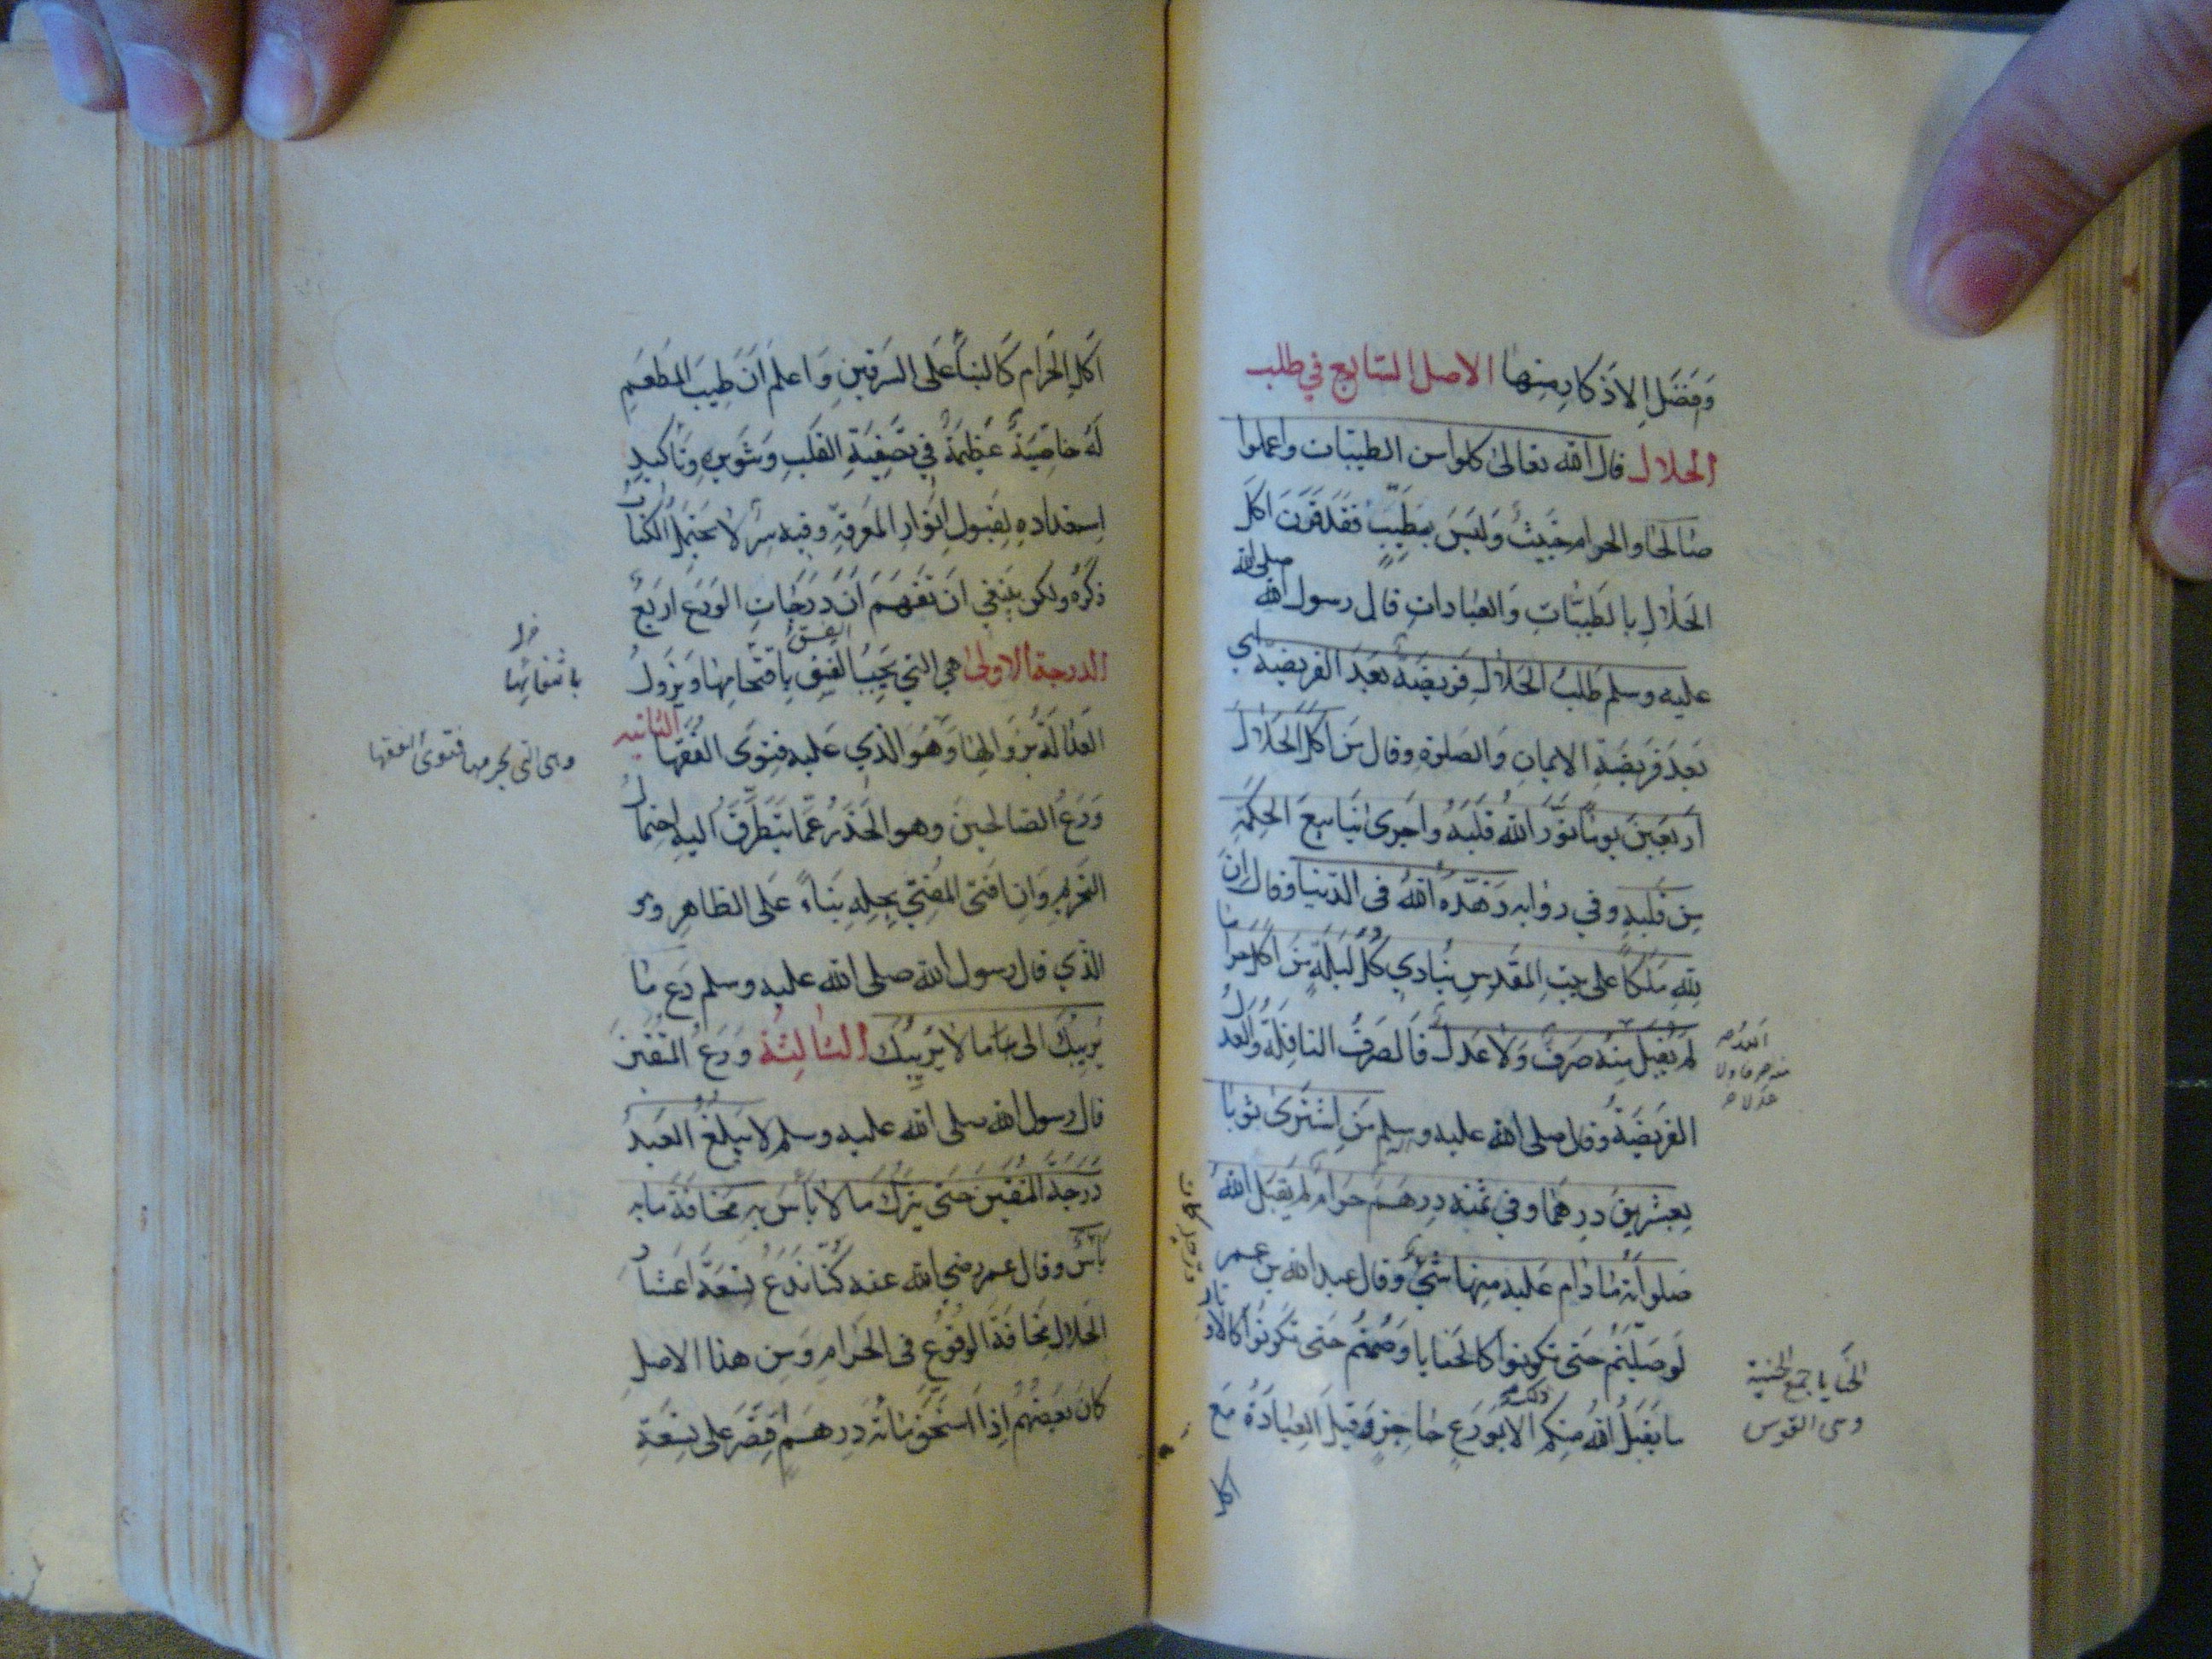 وَفَضَلَ الاَذكار منها الاصل السابع في طلب
الحلال قال الله تعالى كلوا من الطيبات واعملوا
صالحا والحرام خبيث وليس بطيب فقد قرن اكل
الحلال بالطيبات والعبادات قال رسول الله صلى الله
عليه وسلم طلب الحلال فريضة بعد الفريضة اي
بعد فريضة الايمان والصلوة وقال من اكل الحلال
اربعين يوما نور الله قلبه واجرى ينابيع الحكمة
من قلبه وفي رواية زهده الله في الدنيا وقال ان
لله ملكا على بيت المقدس ينادي كل ليلة من اكل حراما
لم يقبل منه صرف ولا عدل فالصرف النافلة والعدل
الفريضة وقال صلى الله عليه وسلم من اشترى ثوبا
بعشرين درهما وفي ثمنه درهم حرام لم يقبل الله
صلواته ما دام عليه منها شئ وقال عبد الله بن عمر
لو صليتم حتى تكونوا كالحنايا وصمتم حتى تكونوا كالاوتار
ما يقبل الله منكم ذلك الا بورع حاجز وقيل العبادة مع
اكل
منه صرفا ولا
عدلا
الحنايا جمع الحنية
وهى القوس
اكل الحرام كالبناء على السرقين واعلم ان طيب المطعم
له خاصية عظيمة في تصفية القلب وتنويره وتاكيد
استعداده لقبول انوار المعرفة وفيه سر لا يحتمل الكتاب
ذكره ولكن ينبغي ان تفهم ان درجات الورع اربع
الدرجة الاولى هي التي يجب الفسق باقتحامها ويزول
العدالة بزوالها وهو الذي عليه فتوى الفقها الثانية
ورع الصالحين وهو الحذر عما يتطرق اليه احتمال
التحريم وان افتى المفتي بحله بناء على الظاهر وهو
الذي قال رسول الله صلى الله عليه وسلم دع ما
يريبك الى ما لا يريبك الثالثة ورع المتقين
قال رسول الله صلى الله عليه وسلم لا يبلغ العبد
درجة المتقين حتى يترك ما لا باس به مخافة ما به
باس وقال عمر رضي الله عنه كنا ندع تسعة اعشار
الحلال مخافة الوقوع في الحرام ومن هذا الاصل
كان بعضهم اذا استحق مائة درهم قصر على تسعة
وهى التى يحرمها فتوى الفقها